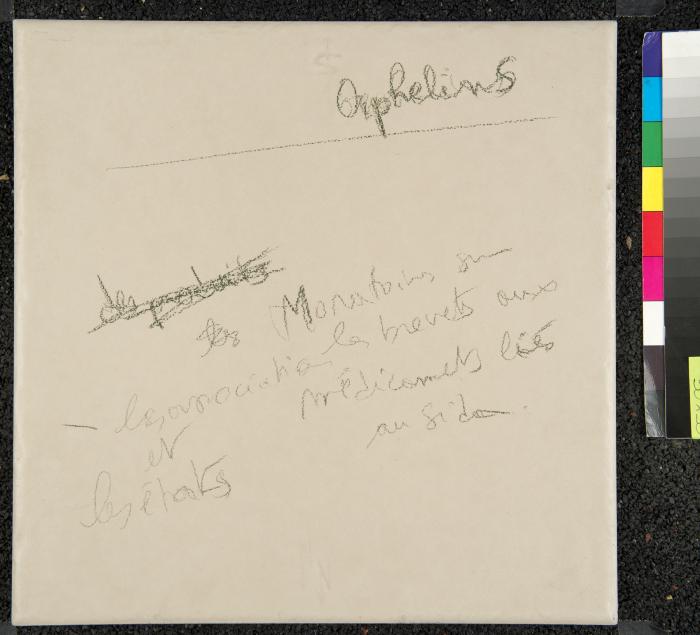 Orphelins
des produits
les Moratoires sur
les brevets aux
médicaments liés
au Sida.
- les associations
et
les états